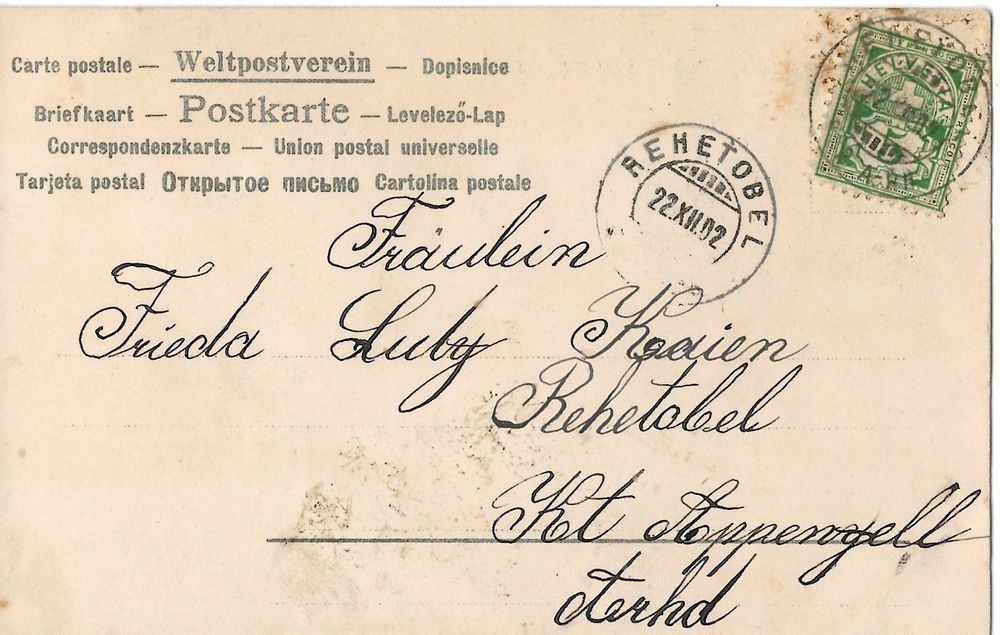 Carte postale — Weltpostverein — Dopisnice
Briefkaart — Postkarte — Levelező-Lap
Correspondenzkarte — Union postal universelle
Tarjeta postal Открытое письмо Cartolina postale
REHETOBEL
22.XII.02
HELVETIA
Fräulein
Frieda Luby Kaien
Rehetabel
Kt Appenzell